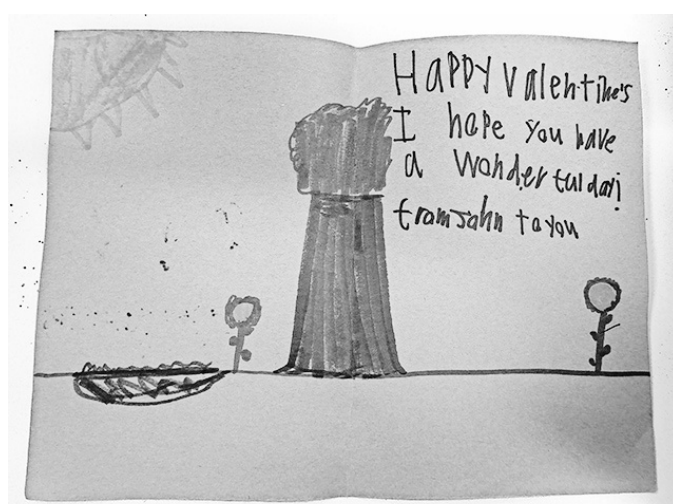 Happy Valentine's
I hope you have
a wonderful day!
from John to you